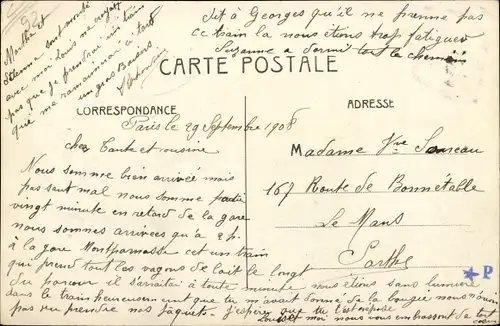 Marthe et
Étienne sont monté
avec moi Louis ne croyait
pas que je prendrai un train
qui me ramènerai à tard
un gros Baisers
Dit à Georges qu'il ne prenne pas
ce train la nous étions trop fatiguer
Suzanne a dormi tout le chemin
CARTE POSTALE
CORRESPONDANCE
ADRESSE
Paris le 29 Septembre 1908
Cher Tante et cousine
Nous somme bien arrivée mais
pas sent mal nous somme partie
vingt minute en retard de la gare
nous sommes arrivées qu'a 2 h.
à la gare Montparnasse cet un train
qui prend tout les vagons de lait le longt
du parcour il sarraitai à toute minute nous étions sans lumière
dans le train heureusement que tu m'avait donné de la bougie nous n'avons
pas pu prendre nos paquets j'espère que tu l'est
Louis et moi nous vous embrassons de tout
coeur
Madame Vve
167 Route de Bonnétable
Le Mans
Sarthe
P